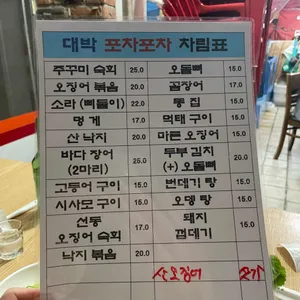 대박 포차포차 차림표
쭈꾸미 숙회 25.0 오돌뼈 15.0
오징어 볶음 20.0 곰장어 15.0
소라 (삐들이) 22.0 똥 집 15.0
멍 게 17.0 먹태 구이 15.0
산 낙지 20.0 마른 오징어 15.0
바다 장어 25.0 두부 김치 20.0
(2마리) (+) 오돌뼈
고등어 구이 15.0 번데기 탕 15.0
시사모 구이 15.0 오뎅 탕 15.0
선동 17.0 돼지 15.0
오징어 숙회 껍데기
낙지 볶음 20.0
산 오징어